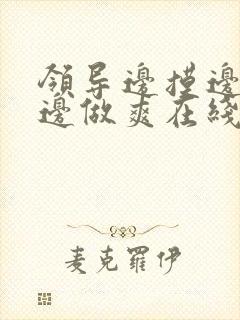 領导邊摸邊
邊做爽在綫
麦克羅伊